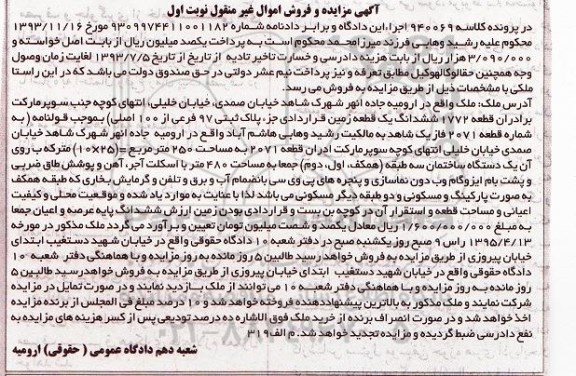 آگهی مزایده و فروش اموال غیر منقول نوبت اول
در پرونده کلاسه ۹۴۰۰۶۹ اجرا، این دادگاه و برابر دادنامه شماره ۹۳۰۹۹۷۴۴۱۱۰۰۱۱۸۲ مورخ ۱۳۹۳/۱۱/۱۶
محکوم علیه رشید وهابی فرزند میرزامحمد محکوم است به پرداخت یکصد میلیون ریال از بابت اصل خواسته و
۳/۰۹۰/۰۰۰ هزار ریال از بابت هزینه دادرسی و خسارت تاخیر تادیه از تاریخ از تاریخ ۱۳۹۳/۷/۵ لغایت زمان وصول
وجه همچنین حقالوکالهوکیل مطابق تعرفه و نیز پرداخت نیم عشر دولتی در حق صندوق دولت می باشد که در این راستا
ملکی با مشخصات ذیل از طریق مزایده به فروش می رسد.
آدرس ملک: ملک واقع در ارومیه جاده انهر شهرک شاهد خیابان صمدی، خیابان خلیلی، انتهای کوچه جنب سوپرمارکت
برادران قطعه ۱۷۷۲ ششدانگ یک قطعه زمین قراردادی جز، پلاک ثبتی ۹۷ فرعی از ۱۰۰ اصلی) بموجب قولنامه (به
شماره قطعه ۲۰۷۱ فاز یک شاهد به مالکیت رشید وهابی هاشم آباد واقع در ارومیه جاده انهر شهرک شاهد خیابان
صمدی خیابان خلیلی انتهای کوچه سوپرمارکت ادران قطعه ۲۰۷۱ به مساحت ۲۵۰ متر مربع =(۱۰×۲۵) مترکه ب روی
آن یک دستگاه ساختمان سه طبقه (همکف، اول، دوم) جمعا به مساحت ۴۸۰ متر با اسکلت آجر، آهن و پوشش طاق ضربی
و پشت بام ایزوگام وب دون نماسازی و پنجره های پی وی سی بانضمام آب و برق و تلفن و گرمایش بخاری که طبقه همکف
به صورت پارکینگ و مسکونی و دو طبقه دیگر مسکونی می باشد لذا با عنایت به موارد یاد شده و موقعیت محلی و کیفیت
اعیانی و مساحت قطعه و استقرار آن در کوچه بن بست و قراردادی بودن زمین ارزش ششدانگ پایه عرصه و اعیان جمعا
به مبلغ ۱/۶۰۰/۰۰۰/۰۰۰ ریال معادل یکصد و شصت میلیون تومان تعیین و برآورد می گردد ملک مذکور در مورخه
۱۳۹۵/۴/۱۳ راس ۹ صبح روز یکشنبه صبح در دفتر شعبه ۱۰ دادگاه حقوقی واقع در خیابان شهید دستغیب ابتدای
خیابان پیروزی از طریق مزایده به فروش خواهد رسید طالبین ۵ روز مانده به روز مزایده و با هماهنگی دفتر شعبه ۱۰
دادگاه حقوقی واقع در خیابان شهید دستغیب ابتدای خیابان پیروزی از طریق مزایده به فروش خواهد رسید طالبین ۵
روز مانده به روز مزایده و با هماهنگی دفتر شعبه ۱۰ می توانند از ملک بازدید نمایند و در صورت تمایل در مزایده
شرکت نمایند و ملک مذکور به بالاترین پیشنهاددهنده فروخته خواهد شد و ۱۰ درصد مبلغ فی المجلس از برنده مزایده
اخذ خواهد شد و در صورت انصراف برنده از خرید ملک فوق الاشاره ده درصد تودیعی پس از کسر هزینه های مزایده به
نفع دادرسی ضبط گردیده و مزایده تجدید خواهد شد. م الف ۳۱۹
شعبه دهم دادگاه عمومی (حقوقی) ارومیه